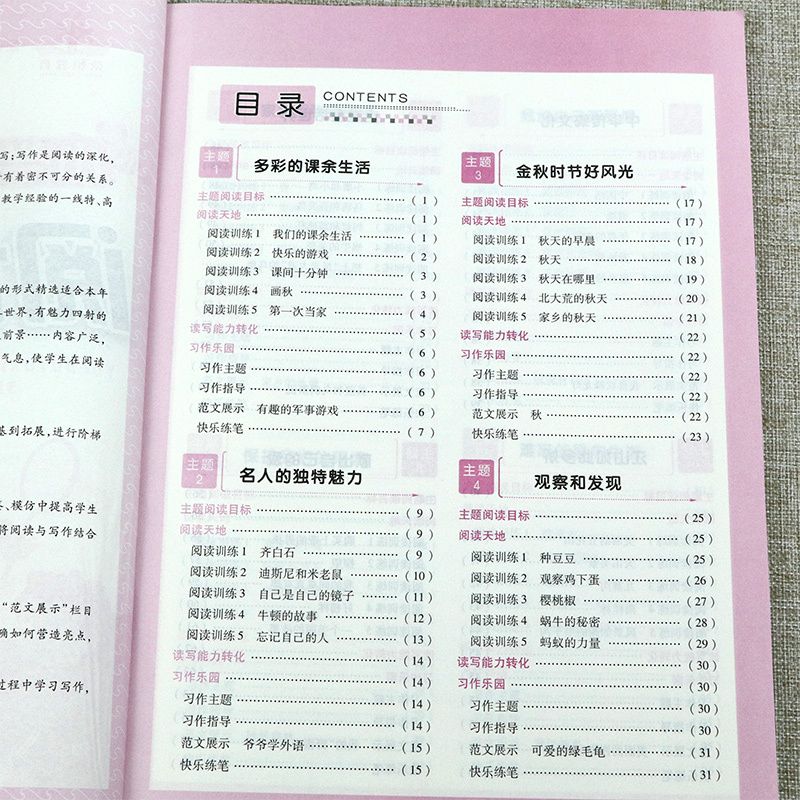 写；写作是阅读的深化，
有着密不可分的关系。
教学经验的一线特、高
的形式精选适合本年
世界，有魅力四射的
前景……内容广泛，
气息，使学生在阅读
基到拓展，进行阶梯
、模仿中提高学生
将阅读与写作结合
“范文展示”栏目
确如何营造亮点，
过程中学习写作，
目录 CONTENTS
主题1 多彩的课余生活
主题阅读目标 ( 1 )
阅读天地 ( 1 )
阅读训练1 我们的课余生活 ( 1 )
阅读训练2 快乐的游戏 ( 2 )
阅读训练3 课间十分钟 ( 3 )
阅读训练4 画秋 ( 3 )
阅读训练5 第一次当家 ( 4 )
读写能力转化 ( 5 )
习作乐园 ( 6 )
习作主题 ( 6 )
习作指导 ( 6 )
范文展示 有趣的军事游戏 ( 6 )
快乐练笔 ( 7 )
主题2 名人的独特魅力
主题阅读目标 ( 9 )
阅读天地 ( 9 )
阅读训练1 齐白石 ( 9 )
阅读训练2 迪斯尼和米老鼠 (10)
阅读训练3 自己是自己的镜子 (11)
阅读训练4 牛顿的故事 (12)
阅读训练5 忘记自己的人 (13)
读写能力转化 (14)
习作乐园 (14)
习作主题 (14)
习作指导 (14)
范文展示 爷爷学外语 (15)
快乐练笔 (15)
主题3 金秋时节好风光
主题阅读目标 (17)
阅读天地 (17)
阅读训练1 秋天的早晨 (17)
阅读训练2 秋天 (18)
阅读训练3 秋天在哪里 (19)
阅读训练4 北大荒的秋天 (20)
阅读训练5 家乡的秋天 (21)
读写能力转化 (22)
习作乐园 (22)
习作主题 (22)
习作指导 (22)
范文展示 秋 (22)
快乐练笔 (23)
主题4 观察和发现
主题阅读目标 (25)
阅读天地 (25)
阅读训练1 种豆豆 (25)
阅读训练2 观察鸡下蛋 (26)
阅读训练3 樱桃椒 (27)
阅读训练4 蜗牛的秘密 (28)
阅读训练5 蚂蚁的力量 (29)
读写能力转化 (30)
习作乐园 (30)
习作主题 (30)
习作指导 (30)
范文展示 可爱的绿毛龟 (31)
快乐练笔 (31)